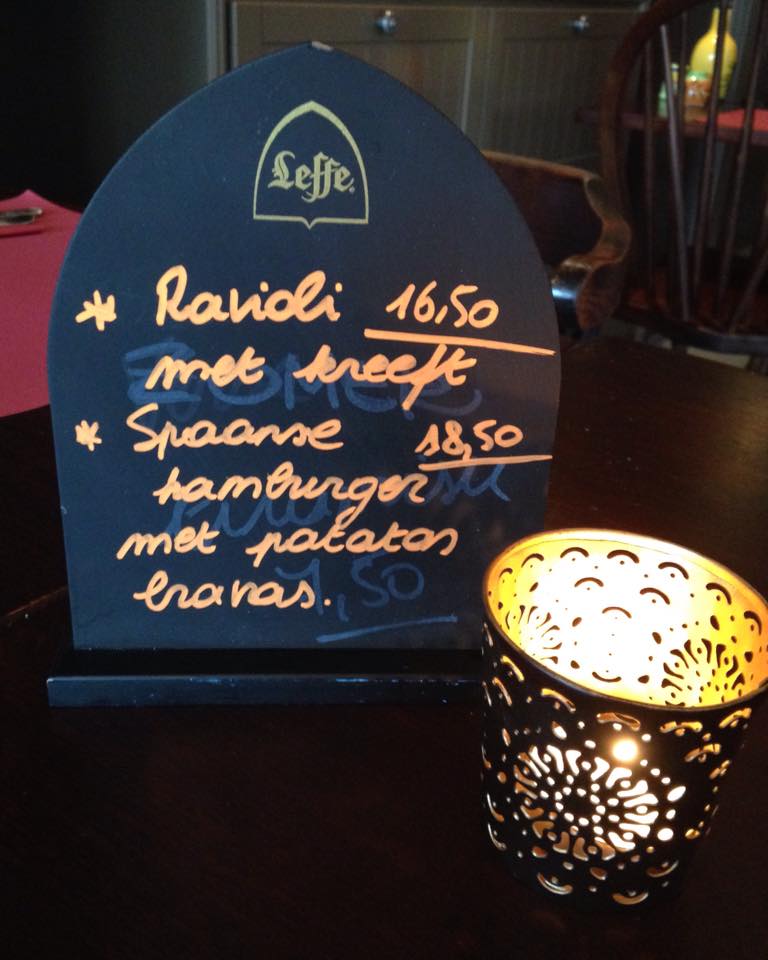 Leffe
* Ravioli 16,50
met kreeft
* Spaanse 18,50
hamburger
met patatas
bravas.
ZOMER
7,50